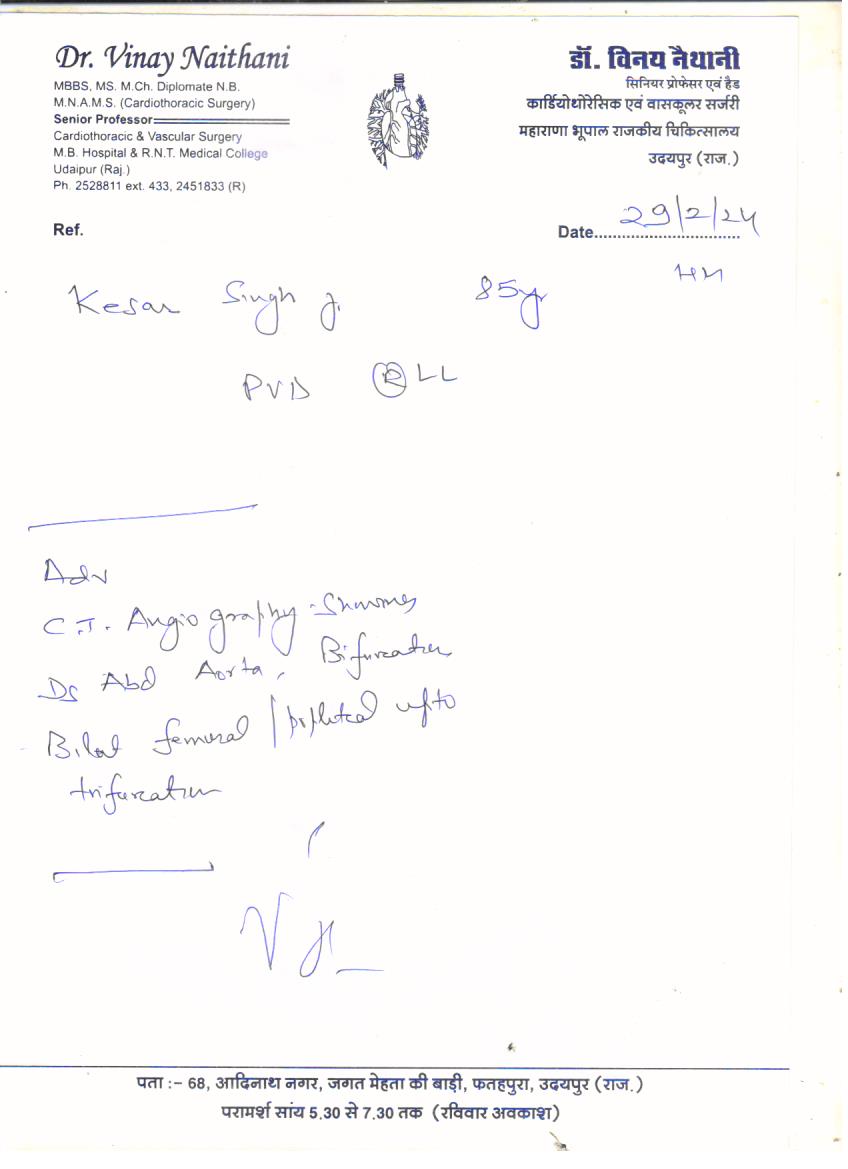 Dr. Vinay Naithani
MBBS, MS. M.Ch. Diplomate N.B.
M.N.A.M.S. (Cardiothoracic Surgery)
Senior Professor
Cardiothoracic & Vascular Surgery
M.B. Hospital & R.N.T. Medical College
Udaipur (Raj.)
Ph. 2528811 ext. 433, 2451833 (R)
डॉ. विनय नैथानी
सिनियर प्रोफेसर एवं हैड
कार्डियोथोरेसिक एवं वासकूलर सर्जरी
महाराणा भूपाल राजकीय चिकित्सालय
उदयपुर (राज.)
Ref.
Date 29/2/24
Kesar Singh J. 85yr
PVD (R) LL
Adv
C.T. Angiography - Showing
Ds Abd Aorta, Bifurcation
Bilat femoral / popliteal upto
trifurcation
पता :– 68, आदिनाथ नगर, जगत मेहता की बाड़ी, फतहपुरा, उदयपुर (राज.)
परामर्श सांय 5.30 से 7.30 तक (रविवार अवकाश)